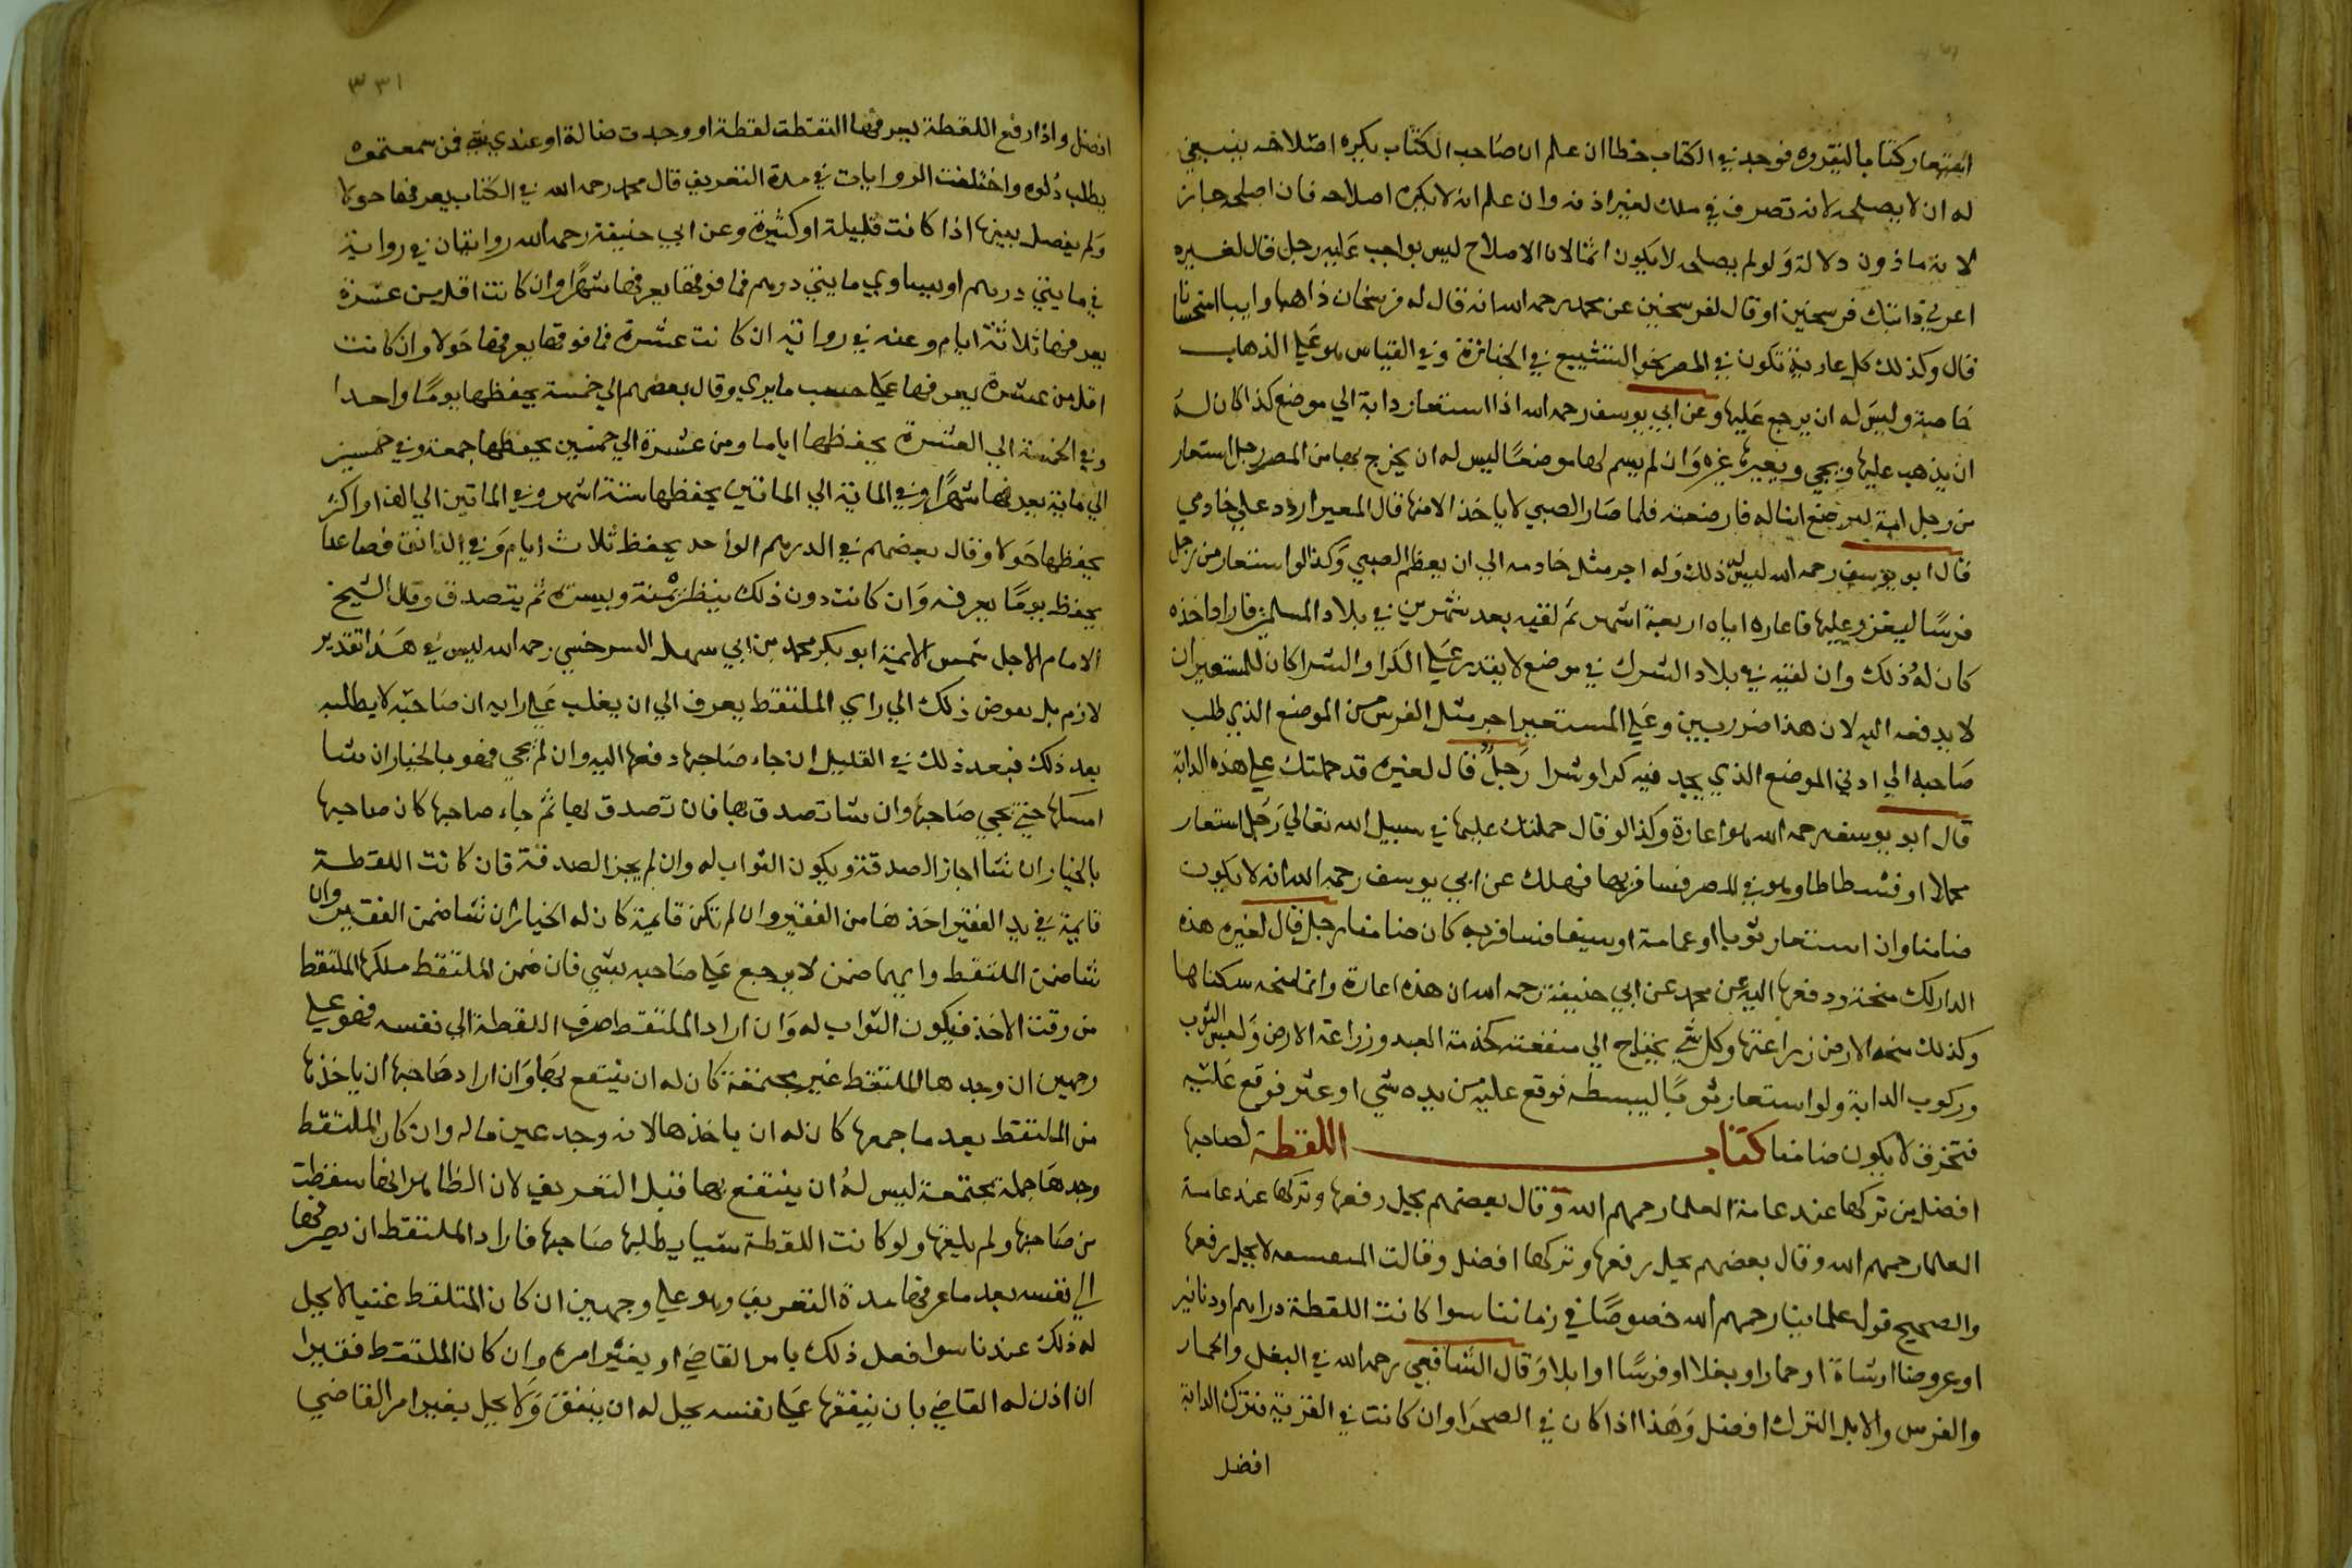 استعار كتابا ليقروه فوجد في الكتاب خطا ان علم ان صاحب الكتاب يكره اصلاحه ينبغي
له ان لا يصلحه لانه تصرف في ملك لغير اذنه وان علم انه لا يكره اصلاحه فان اصلحه جاز
لانه ماذون دلالة ولو لم يصلحه لا يكون اثما لان الاصلاح ليس بواجب عليه رجل قال لغيره
اعرني دابتك فرسخين او قال لفرسخين عن محمد رحمه الله انه قال له فرسخان ذاهبا وايبا استحسانا
قال وكذلك كل عارية تكون في المصر نحو التشييع في الجنازة وفي القياس هو على الذهاب
خاصة وليس له ان يرجع عليها وعن ابي يوسف رحمه الله اذا استعار دابة الي موضع كذا كان له
ان يذهب عليها ويجي ويعيرها غيره وان لم يسم لها موضعا ليس له ان يخرج بها من المصر رجل استعار
من رجل امة لترضع ابنا له فارضعته فلما صار الصبي لا ياخذ الا منها قال المعير اردد علي خادمي
قال ابو يوسف رحمه الله ليس له ذلك وله اجر مثل خادمه الي ان يفطم الصبي وكذا لو استعار من رجل
فرسا ليغزو عليها فاعاره اياه اربعة اشهر ثم لقيه بعد شهرين في بلاد المسلمين فاراد اخذه
كان له ذلك وان لقيه في بلاد الشرك في موضع لا يقدر على الكرا والشرا كان للمستعير ان
لا يدفعه اليه لان هذا ضرر بين وعلى المستعير اجر مثل الفرس من الموضع الذي طلب
صاحبه الي ادني الموضع الذي يجد فيه كرا وشرا رجل قال لغيره قد حملتك على هذه الدابة
قال ابو يوسف رحمه الله هو اعارة وكذا لو قال حملتك عليها في سبيل الله تعالي رجل استعار
محملا او فسطاطا وهو في المصر فسافر بها فهلك عن ابي يوسف رحمه الله انه لا يكون
ضامنا وان استعار ثوبا او عمامة او سيفا فسافر به كان ضامنا رجل قال لغيره هذه
الدار لك منحة ودفعها اليه عن محمد عن ابي حنيفة رحمه الله ان هذه اعارة وانما منحه سكناها
وكذلك منحه الارض زراعتها وكل شي يحتاج الي منفعته كخدمة العبد وزراعة الارض ولبس الثوب
وركوب الدابة ولو استعار ثوبا ليبسطه فوقع عليه من يده شي او عثر فوقع عليه
فتخرق لا يكون ضامنا كتاب اللقطة لصاحبها
افضل من تركها عند عامة العلما رحمهم الله وقال بعضهم يحل رفعها وتركها عند عامة
العلما رحمهم الله وقال بعضهم يحل رفعها وتركها افضل وقالت لا يحل رفعها
والصحيح قول علماينا رحمهم الله خصوصا في زماننا سوا كانت اللقطة دراهم او دنانير
او عروضا او شاة او حمارا او بغلا او فرسا او ابلا وقال الشافعي رحمه الله في البغل والحمار
والفرس والابل الترك افضل وهذا اذا كان في الصحرا وان كانت في القرية فترك الدابة
افضل
٣٣١
افضل واذا رفع اللقطة يعرفها التقطت لقطة او وجدت ضالة او عندي فمن سمعتموه
يطلب دلوه واختلفت الروايات في مدة التعريف قال محمد رحمه الله في الكتاب يعرفها حولا
ولم يفصل بينها اذا كانت قليلة او كثيرة وعن ابي حنيفة رحمه الله روايتان في رواية
في مايتي درهم او يساوي مايتي درهم فما فوقها يعرفها شهرا وان كانت اقل من عشرة
يعرفها ثلاثة ايام وعنه في رواية ان كانت عشرة فما فوقها يعرفها حولا وان كانت
اقل من عشرة يعرفها على حسب ما يري وقال بعضهم الي خمسة يحفظها يوما واحدا
وفي الخمسة الي العشرة يحفظها اياما ومن عشرة الي خمسين يحفظها جمعة وفي خمسين
الي ماية يعرفها شهرا وفي الماية الي الماتين يحفظها ستة اشهر وفي الماتين الي الف او اكثر
يحفظها حولا وقال بعضهم في الدرهم الواحد يحفظ ثلاث ايام وفي الدانق فصاعدا
يحفظ يوما يعرفه وان كانت دون ذلك ينظر يمنة ويسرة ثم يتصدق وقال الشيخ
الامام الاجل شمس الايمة ابو بكر محمد بن ابي سهل السرخسي رحمه الله ليس في هذا تقدير
لازم بل يفوض ذلك الي راي الملتقط يعرف الي ان يغلب على رايه ان صاحبه لا يطلبه
بعد ذلك فبعد ذلك في القليل ان جاء صاحبها دفعها اليه وان لم يجي فهو بالخيار ان شا
امسكها حتي يجي صاحبها وان شا تصدق بها فان تصدق بها ثم جاء صاحبها كان صاحبها
بالخيار ان شا اجاز الصدقة ويكون الثواب له وان لم يجز الصدقة فان كانت اللقطة
قايمة في يد الفقير اخذها من الفقير وان لم تكن قايمة كان له الخيار ان شا ضمن الفقير وان
شا ضمن الملتقط وايهما ضمن لا يرجع على صاحبه بشي فان ضمن الملتقط ملكها الملتقط
من وقت الاخذ فيكون الثواب له وان اراد الملتقط صرف اللقطة الي نفسه فهو على
وجهين ان وجدها الملتقط غير مجتمعة كان له ان ينتفع بها وان اراد صاحبها ان ياخذها
من الملتقط بعد ما جمعها كان له ان ياخذها لانه وجد عين ماله وان كان الملتقط
وجدها جملة مجتمعة ليس له ان ينتفع بها قبل التعريف لان الظاهر انها سقطت
من صاحبها ولم يلقها ولو كانت اللقطة شيا يطلبها صاحبها فاراد الملتقط ان يصرفها
الي نفسه بعد ما عرفها مدة التعريف وهو على وجهين ان كان الملتقط غنيا لا يحل
له ذلك عندنا سوا فعل ذلك بامر القاضي او بغير امره وان كان الملتقط فقيرا
ان اذن له القاضي بان ينفقها على نفسه يحل له ان ينفق ولا يحل بغير امر القاضي